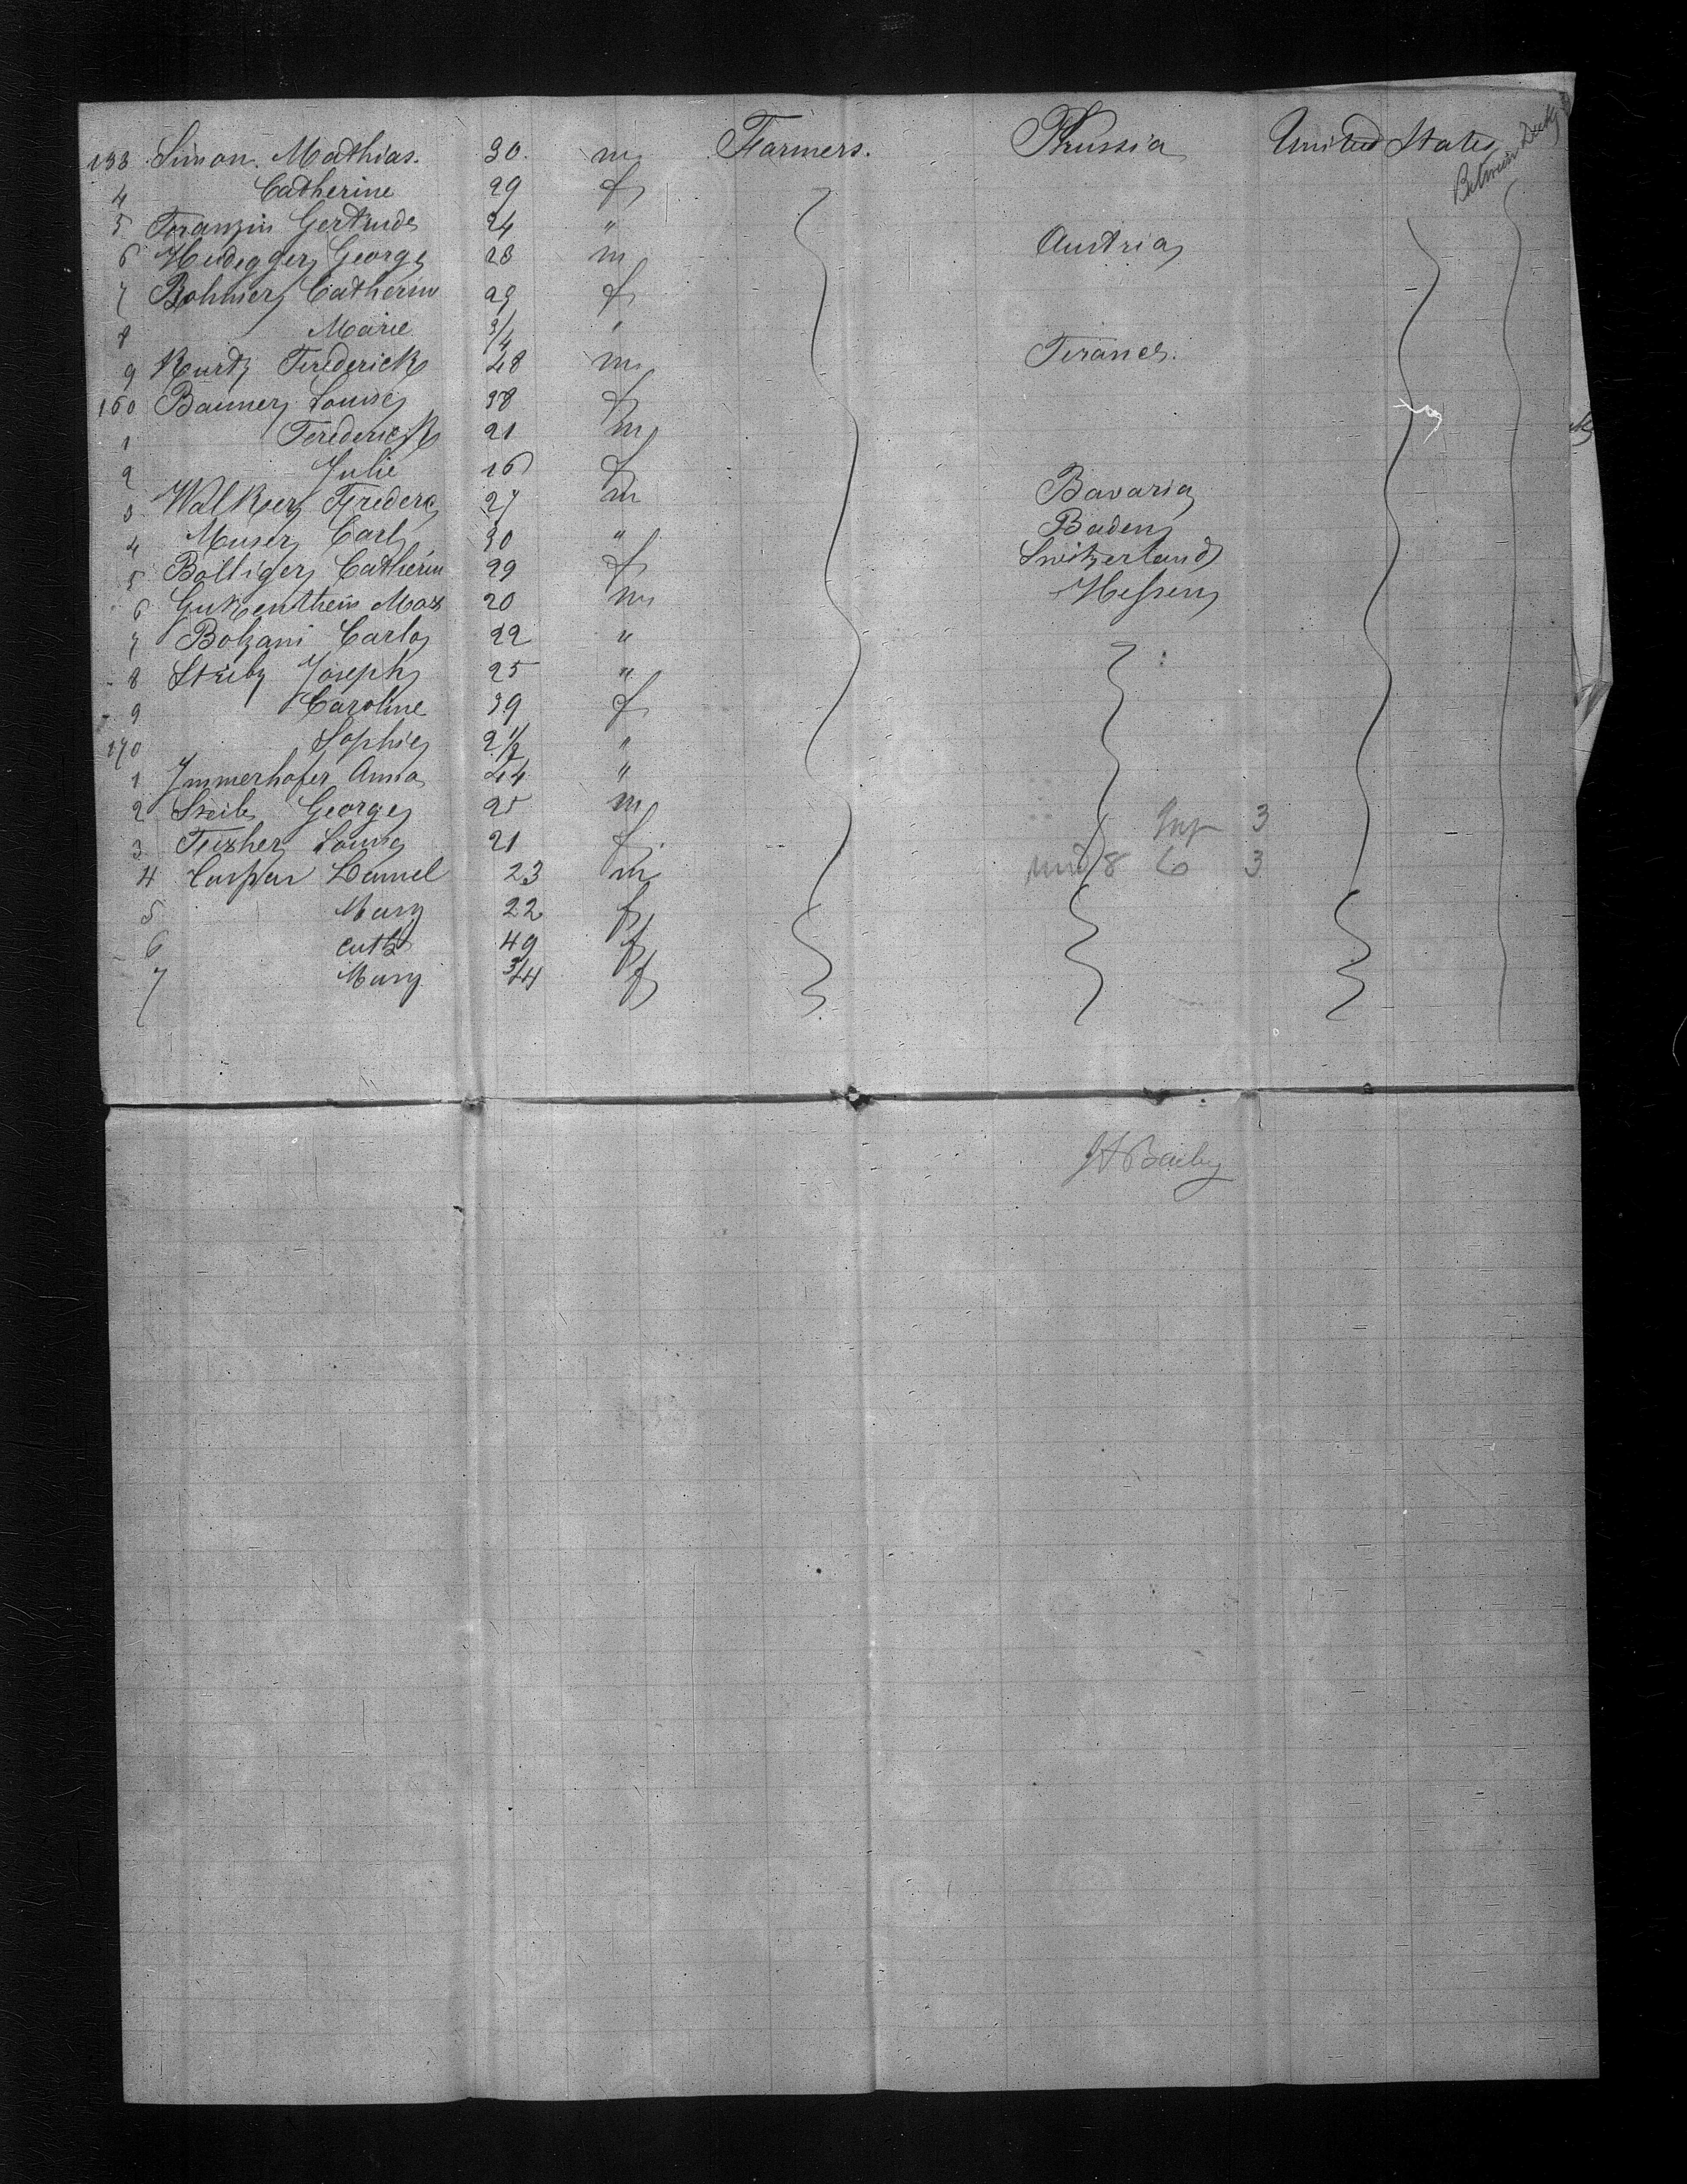 153 Simon Mathias. 30. m Farmers. Prussia United States Between Decks
4 Catherine 29 f
5 Franzin Gertrude 24 "
6 Heidegger George 28 m Austria
7 Bohnier Catherine 29 f
8 Marie 3/4 "
9 Kurtz Frederick 48 m France.
160 Banner Louise 38 f
1 Frederick 21 m
2 Julie 16 f
3 Walker Frederic 27 m Bavaria
4 Muser Carl 30 " Baden
5 Bolliger Catherin 29 f Switzerland
6 Gukentheim Max 20 m Hessen
7 Bolzani Carlo 22 "
8 Streiby Joseph 25 "
9 Caroline 39 f
170 Sophie 2 1/2 "
1 Immerhofer Anna 44 "
2 Streib George 25 m
3 Fuxher Louise 21 f. Inf 3
4 Caspar Daniel 23 m und 8 6 3
5 Mary 22 f
6 Cath 49 f
7 Mary 3/4 f
JA Bailey